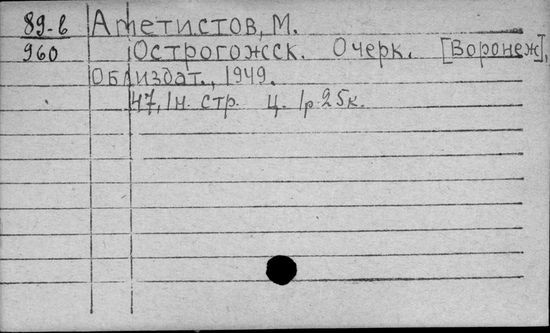 89-в Аметистов, М.
960 Острогожсск. Очерк. [Воронеж],
Облиздат., 1949.
47, 1н. стр. ц. 1р. 25к.